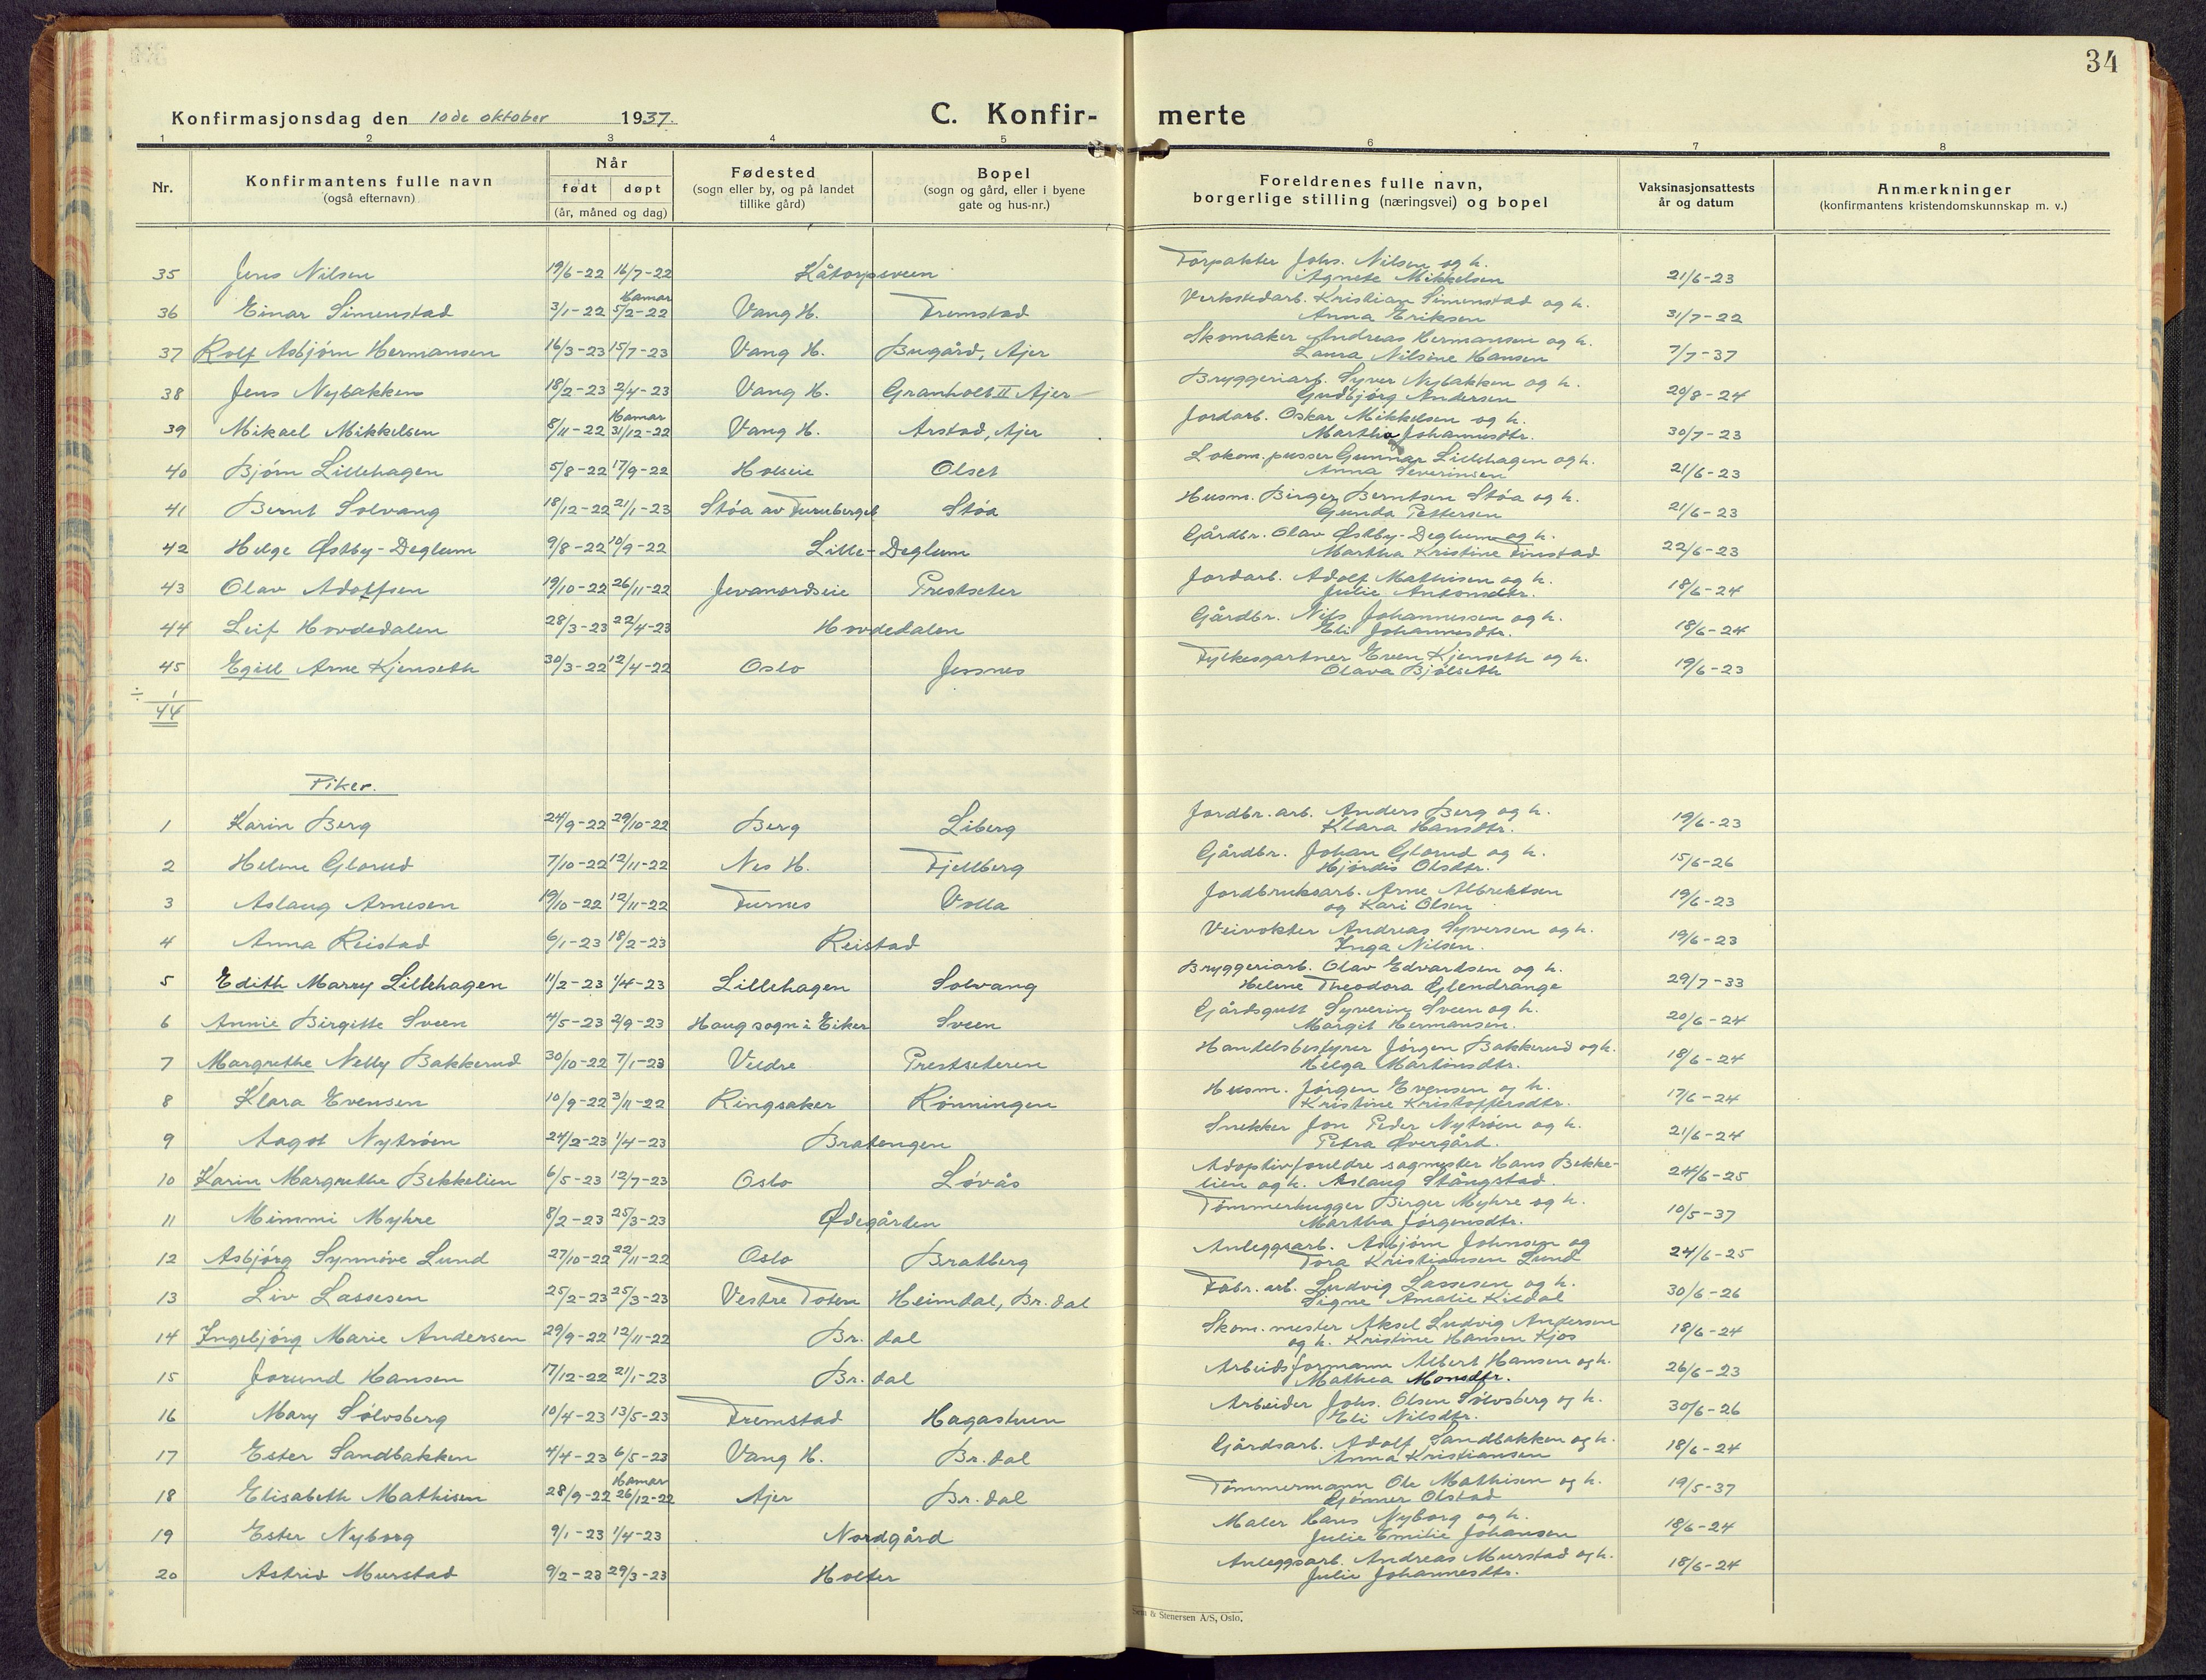 34
Konfirmasjonsdag den 10de oktober 1937.
C. Konfirmerte
1 2 3 4 5 6 7 8
Nr.
Konfirmantens fulle navn
(også efternavn)
Når
født døpt
(år, måned og dag)
Fødested
(sogn eller by, og på landet
tillike gård)
Bopel
(sogn og gård, eller i byene
gate og hus-nr.)
Foreldrenes fulle navn,
borgerlige stilling (næringsvei) og bopel
Vaksinasjonsattests
år og datum
Anmerkninger
(konfirmantens kristendomskunnskap m. v.)
35 Jens Nilsen 19/6-22 16/7-22 Kåtorpsveen Torpakter Johs. Nilsen og h. Agnete Mikkelsen 21/6-23
36 Einar Simenstad 3/1-22 Hamar 5/2-22 Vang H. Fremstad Verkstedarb. Kristian Simenstad og h. Anna Eriksen 31/7-22
37 Rolf Asbjørn Hermansen 16/3-23 15/7-23 Vang H. Bugård, Ajer Skomaker Andreas Hermansen og h. Laura Nilsine Hansen 7/7-37
38 Jens Nybakken 18/2-23 2/4-23 Vang H. Granholt II Ajer Bryggeriarb. Syver Nybakken og h. Gudbjørg Andersen 20/8-24
39 Mikael Mikkelsen 8/11-22 Hamar 31/12-22 Vang H. Arstad, Ajer Jordarb. Oskar Mikkelsen og h. Martha Johannesdtr. 30/7-23
40 Bjørn Lillehagen 5/8-22 17/9-22 Holseie Olset Lokom.pusser Gunnar Lillehagen og h. Anna Severinsen 21/6-23
41 Bernt Solvang 18/12-22 21/1-23 Støa av Furuberget Støa Husm. Birger Berntsen Støa og h. Gunda Pettersen 21/6-23
42 Helge Østby-Deglum 9/8-22 10/9-22 Lille-Deglum Gårdbr. Olav Østby-Deglum og h. Martha Kristine Finstad 22/6-23
43 Olav Adolfsen 19/10-22 26/11-22 Jevanordseie Prestseter Jordarb. Adolf Mathisen og h. Julie Antonsdtr. 18/6-24
44 Leif Hovdedalen 28/3-23 22/4-23 Hovdedalen Gårdbr. Nils Johannessen og h. Eli Johannesdtr. 18/6-24
45 Egill Arne Kjenseth 30/3-22 12/4-22 Oslo Jessnes Fylkesgartner Even Kjenseth og h. Olava Bjølseth 19/6-23
÷ 1
44
Piker.
1 Karin Berg 24/9-22 29/10-22 Berg Liberg Jordbr.arb. Anders Berg og h. Klara Hansdtr. 19/6-23
2 Helene Glorud 7/10-22 12/11-22 Nes H. Fjellberg Gårdbr. Johan Glorud og h. Hjørdis Olsdtr. 15/6-26
3 Aslaug Arnesen 19/10-22 12/11-22 Furnes Volla Jordbruksarb. Arne Albrektsen og Kari Olsen 19/6-23
4 Anna Reistad 6/1-23 18/2-23 Reistad Veivokter Andreas Syversen og h. Inga Nilsen. 19/6-23
5 Edith Marry Lillehagen 11/2-23 1/4-23 Lillehagen Solvang Bryggeriarb. Olav Edvardsen og h. Helene Theodora Glendrange 29/7-33
6 Annie Birgitte Sveen 4/5-23 2/9-23 Haug sogn i Eiker Sveen Gårdsgutt Syverin Sveen og h. Margit Hermansen. 20/6-24
7 Margrethe Nelly Bakkerud 30/10-22 7/1-23 Veldre Prestseteren Handelsbestyrer Jørgen Bakkerud og h. Helga Martinsdtr. 18/6-24
8 Klara Evensen 10/9-22 3/11-22 Ringsaker Rønningen Husm. Jørgen Evensen og h. Kristine Kristoffersdtr. 17/6-24
9 Aagot Nytrøen 24/2-23 1/4-23 Bratengen Snekker Jon Peder Nytrøen og h. Petra Øvergård. 21/6-24
10 Karin Margrethe Bekkelien 6/5-23 12/7-23 Oslo Løvås Adoptivforeldre sagmester Hans Bekkelien og h. Aslaug Stångstad. 24/6-25
11 Mimmi Myhre 8/2-23 25/3-23 Ødegården Tømmerhugger Birger Myhre og h. Martha Jørgensdtr. 10/5-37
12 Asbjørg Synnøve Lund 27/10-22 22/11-22 Oslo Bratberg Anleggsarb. Asbjørn Johnsen og Tora Kristiansen Lund 24/6-25
13 Liv Lassesen 25/2-23 25/3-23 Vestre Toten Heimdal, Br.dal Fabr.arb. Ludvig Lassesen og h. Signe Amalie Kildal 30/6-26
14 Ingebjørg Marie Andersen 29/9-22 12/11-22 Br.dal Skom.mester Aksel Ludvig Andersen og h. Kristine Hansen Kjos 18/6-24
15 Jorund Hansen 17/12-22 21/1-23 Br.dal Arbeidsformann Albert Hansen og h. Mathea Monsdtr. 26/6-23
16 Mary Sølvsberg 10/4-23 13/5-23 Fremstad Hagastuen Arbeider Johs. Olsen Sølvsberg og h. Eli Nilsdtr. 30/6-26
17 Ester Sandbakken 4/4-23 6/5-23 Vang H. Br.dal Gårdsarb. Adolf Sandbakken og h. Anna Kristiansen 18/6-24
18 Elisabeth Mathisen 28/9-22 Hamar 26/12-22 Ajer Br.dal Tømmermann Ole Mathisen og h. Gjønner Olstad 19/5-37
19 Ester Nyborg 9/1-23 1/4-23 Nordgård Maler Hans Nyborg og h. Julie Emilie Johansen 18/6-24
20 Astrid Murstad 9/2-23 29/3-23 Holter Anleggsarb. Andreas Murstad og h. Julie Johannesdtr. 18/6-24
& Stenersen A/S, Oslo.